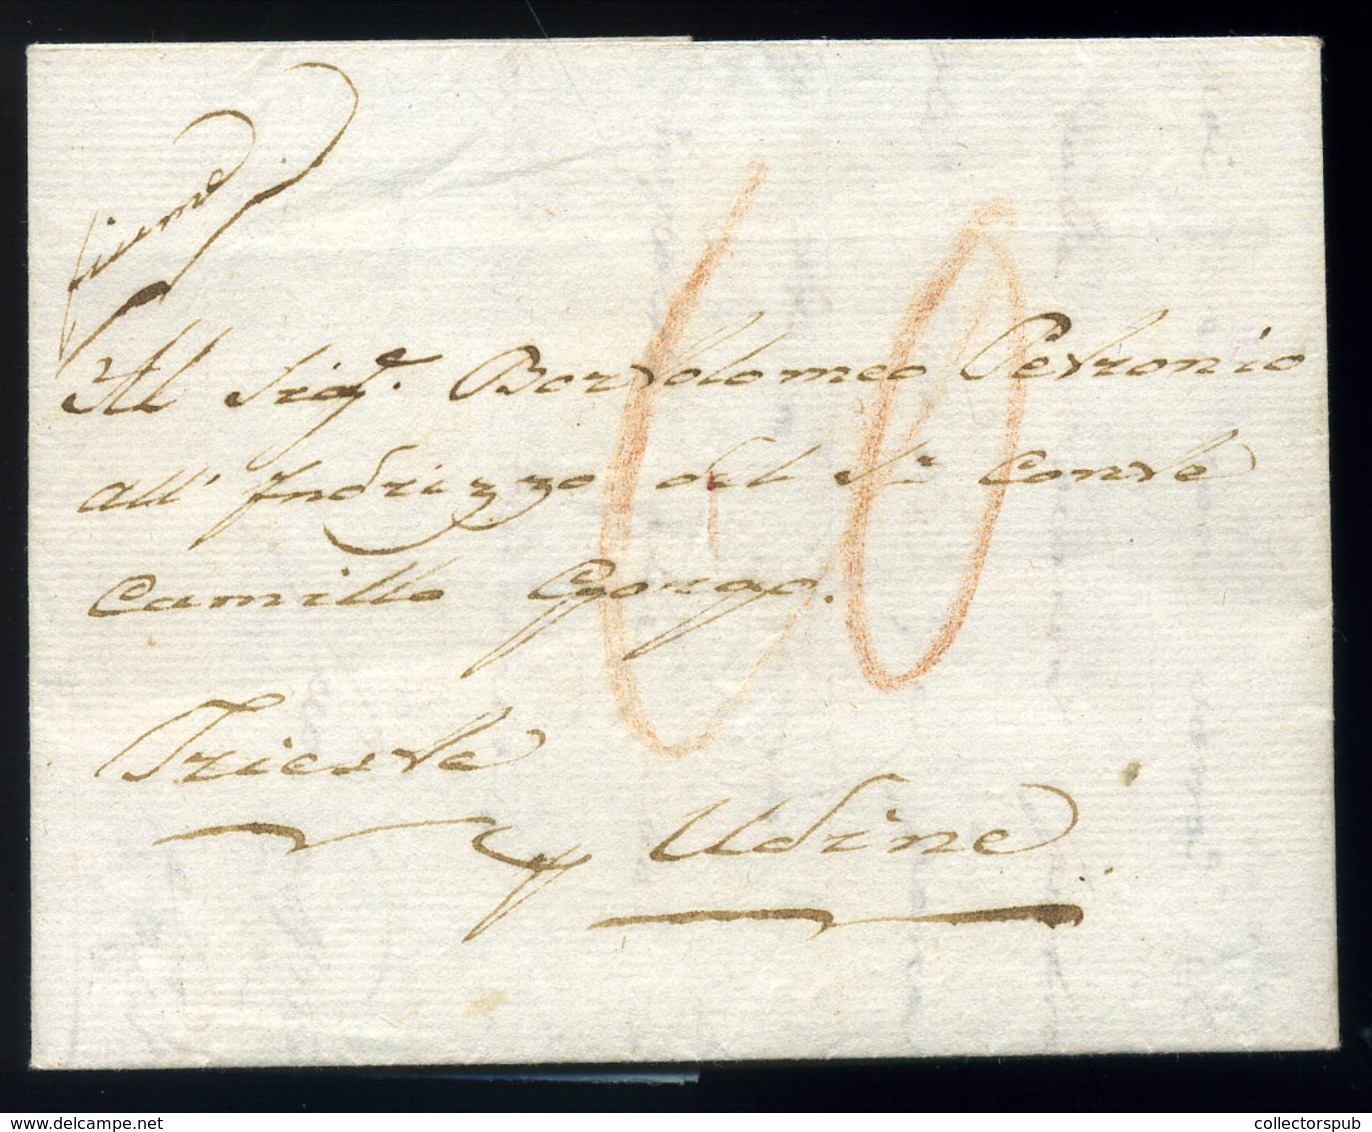 fiume
Al Sig.e Bortolomeo Petronio
all' Indrizzo del Sr Conte
Camillo Gorgo.
Trieste
Udine
60
collectorspub